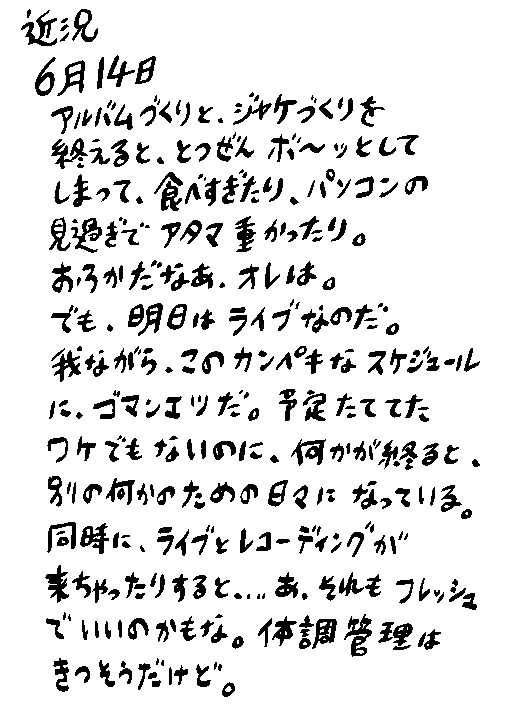 近況
6月14日
アルバムづくりと、ジャケづくりを
終えると、とつぜん ボ〜ッとして
しまって、食べすぎたり、パソコンの
見過ぎで アタマ 重かったり。
おろかだなあ、オレは。
でも、明日は ライブなのだ。
我ながら、このカンペキな スケジュール
に、ゴマンエツだ。予定たててた
ワケでもないのに、何かが終ると、
別の何かのための日々に なっている。
同時に、ライブとレコーディングが
来ちゃったりすると、... あ、それも フレッシュ
でいいのかもな。体調管理は
きつそうだけど。